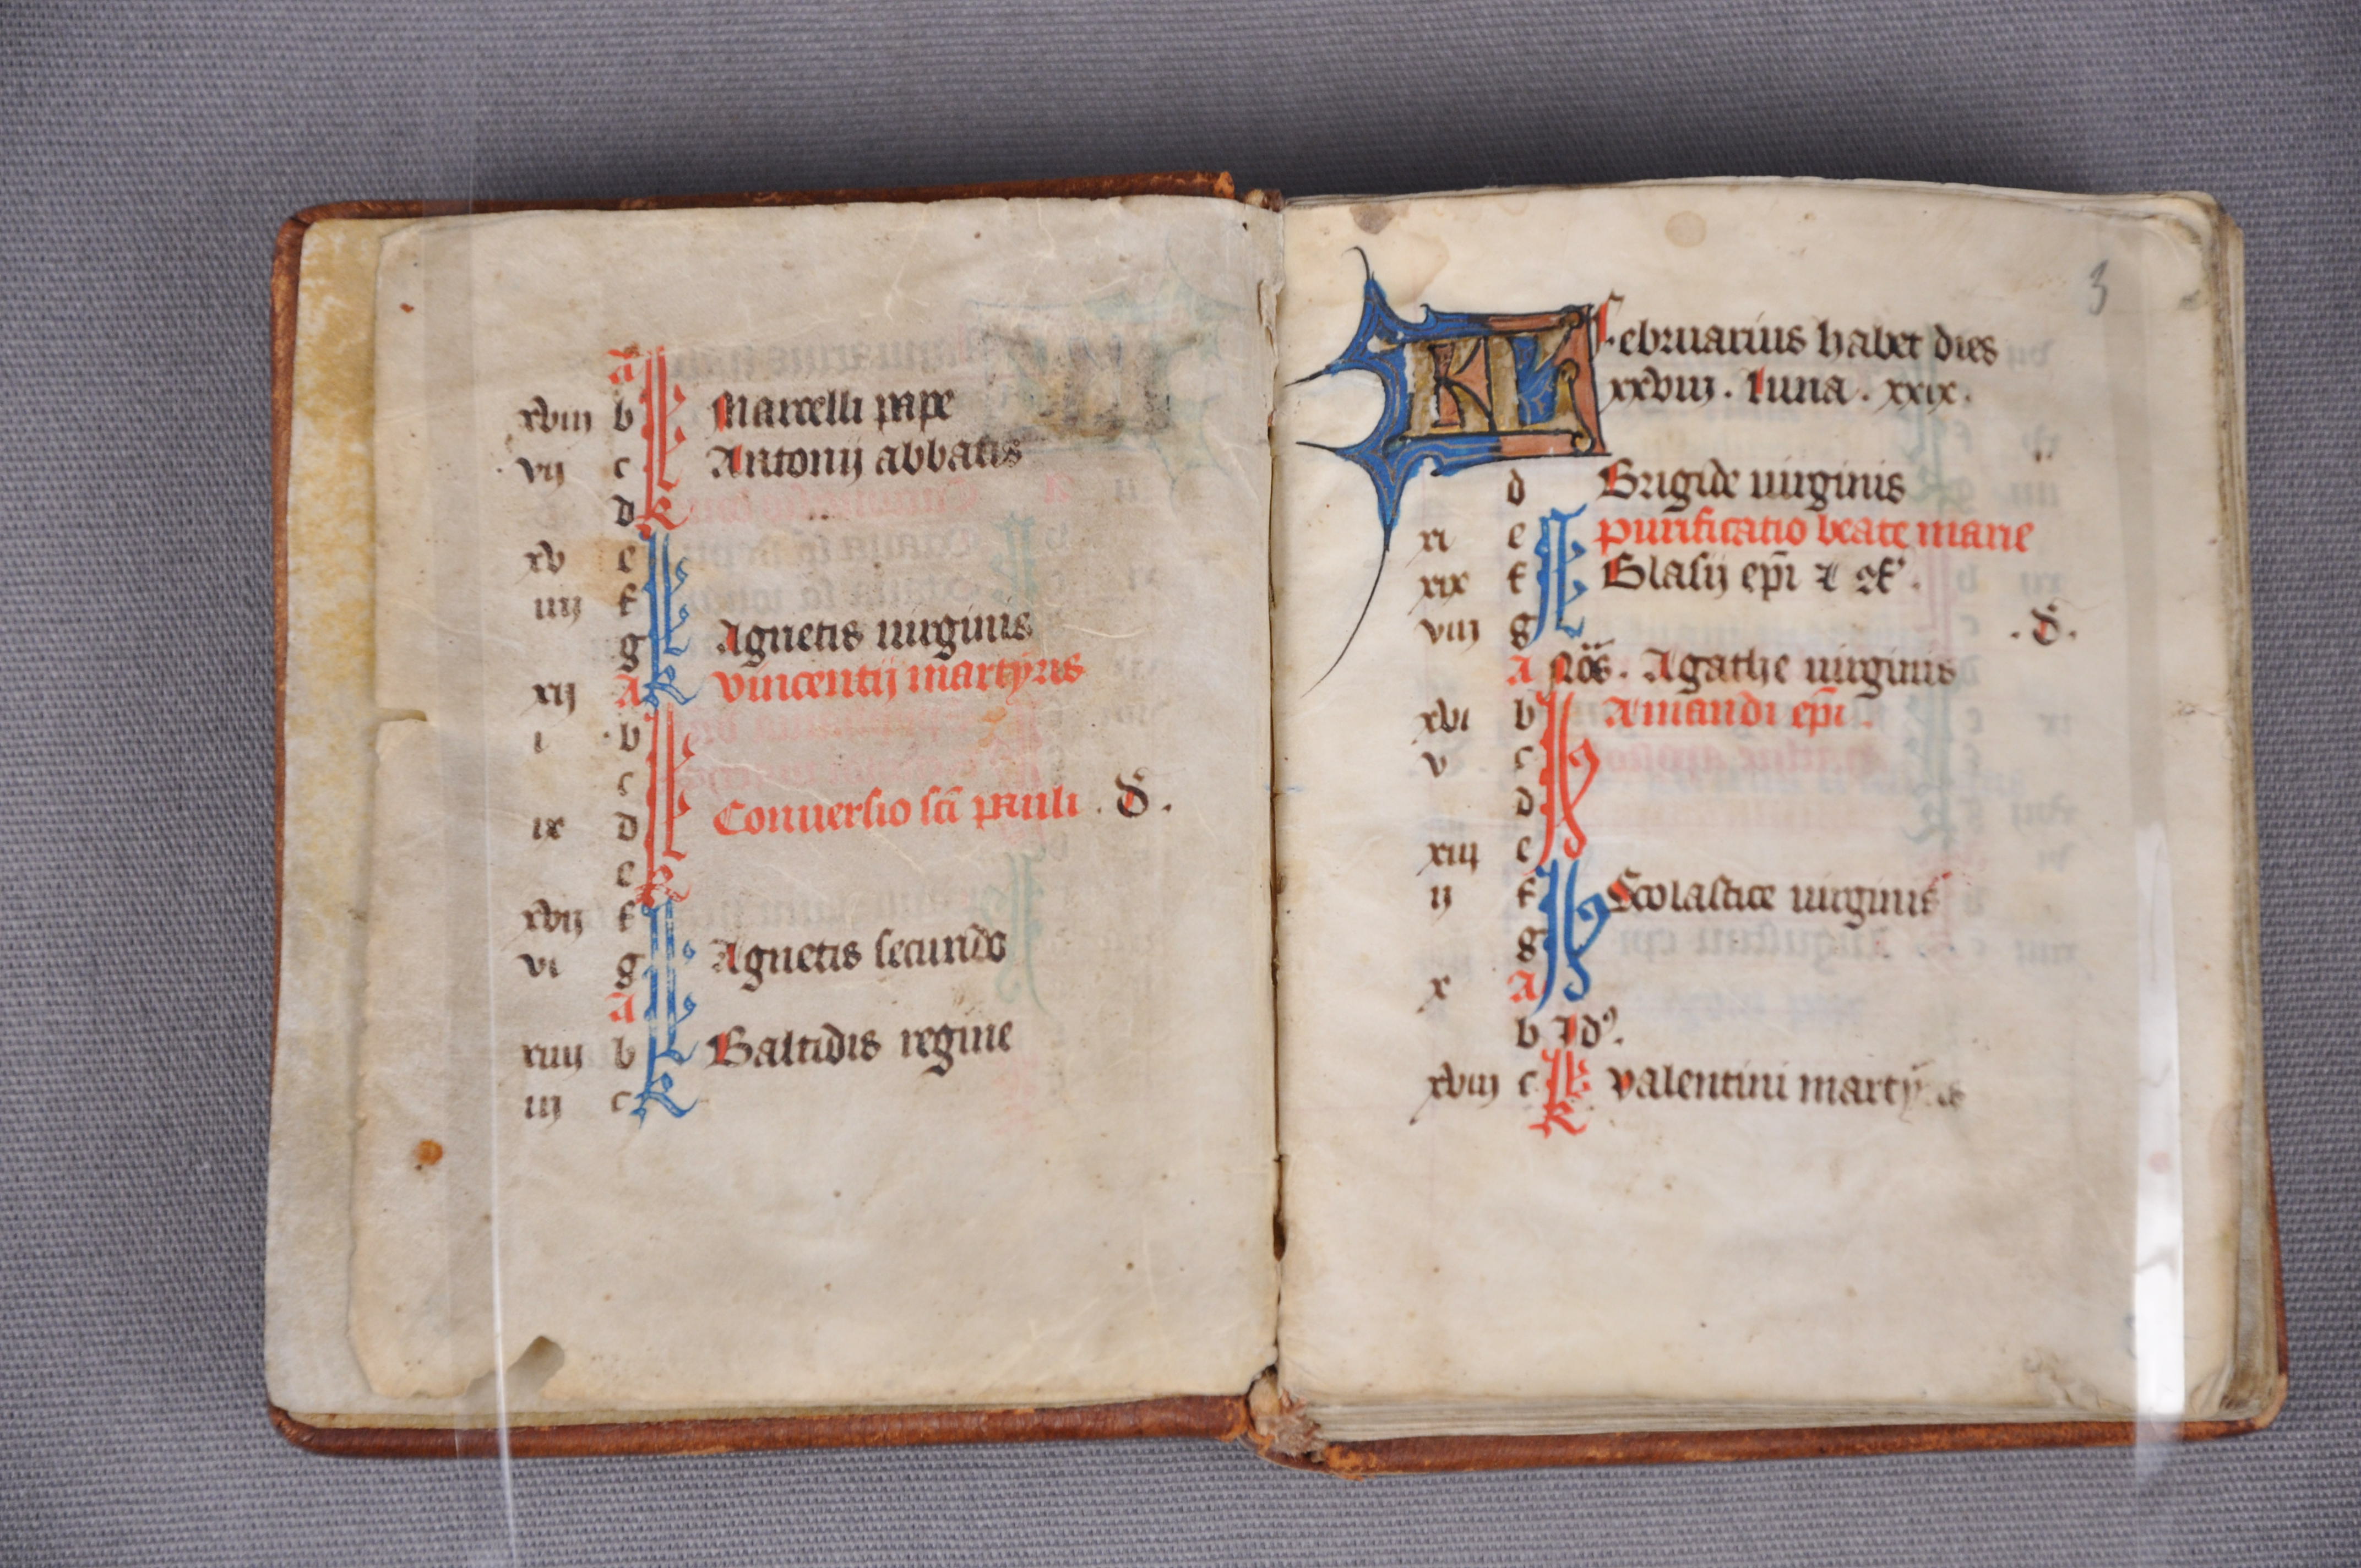 A
xviij b Marcelli pape
vij c Antonij abbatis
d
xv e
iiij f
g Agnetis uirginis
xij A Vincentij martyris
i b
c
ix d Conuersio sci pauli . D .
e
xvij f
vi g Agnetis secundo
A
xiiij b Baltidis regine
iij c
3
KL Februarius habet dies
xxviij . luna . xxix .
d Brigide uirginis
xi e Purificatio beate marie
xix f Blasij epi
viij g . D .
A Nos . Agathe uirginis
xvi b Amandi epi .
v c
d
xiij e
ij f Scolastice uirginis
g
x A
b Id9.
xviij c Valentini martyris